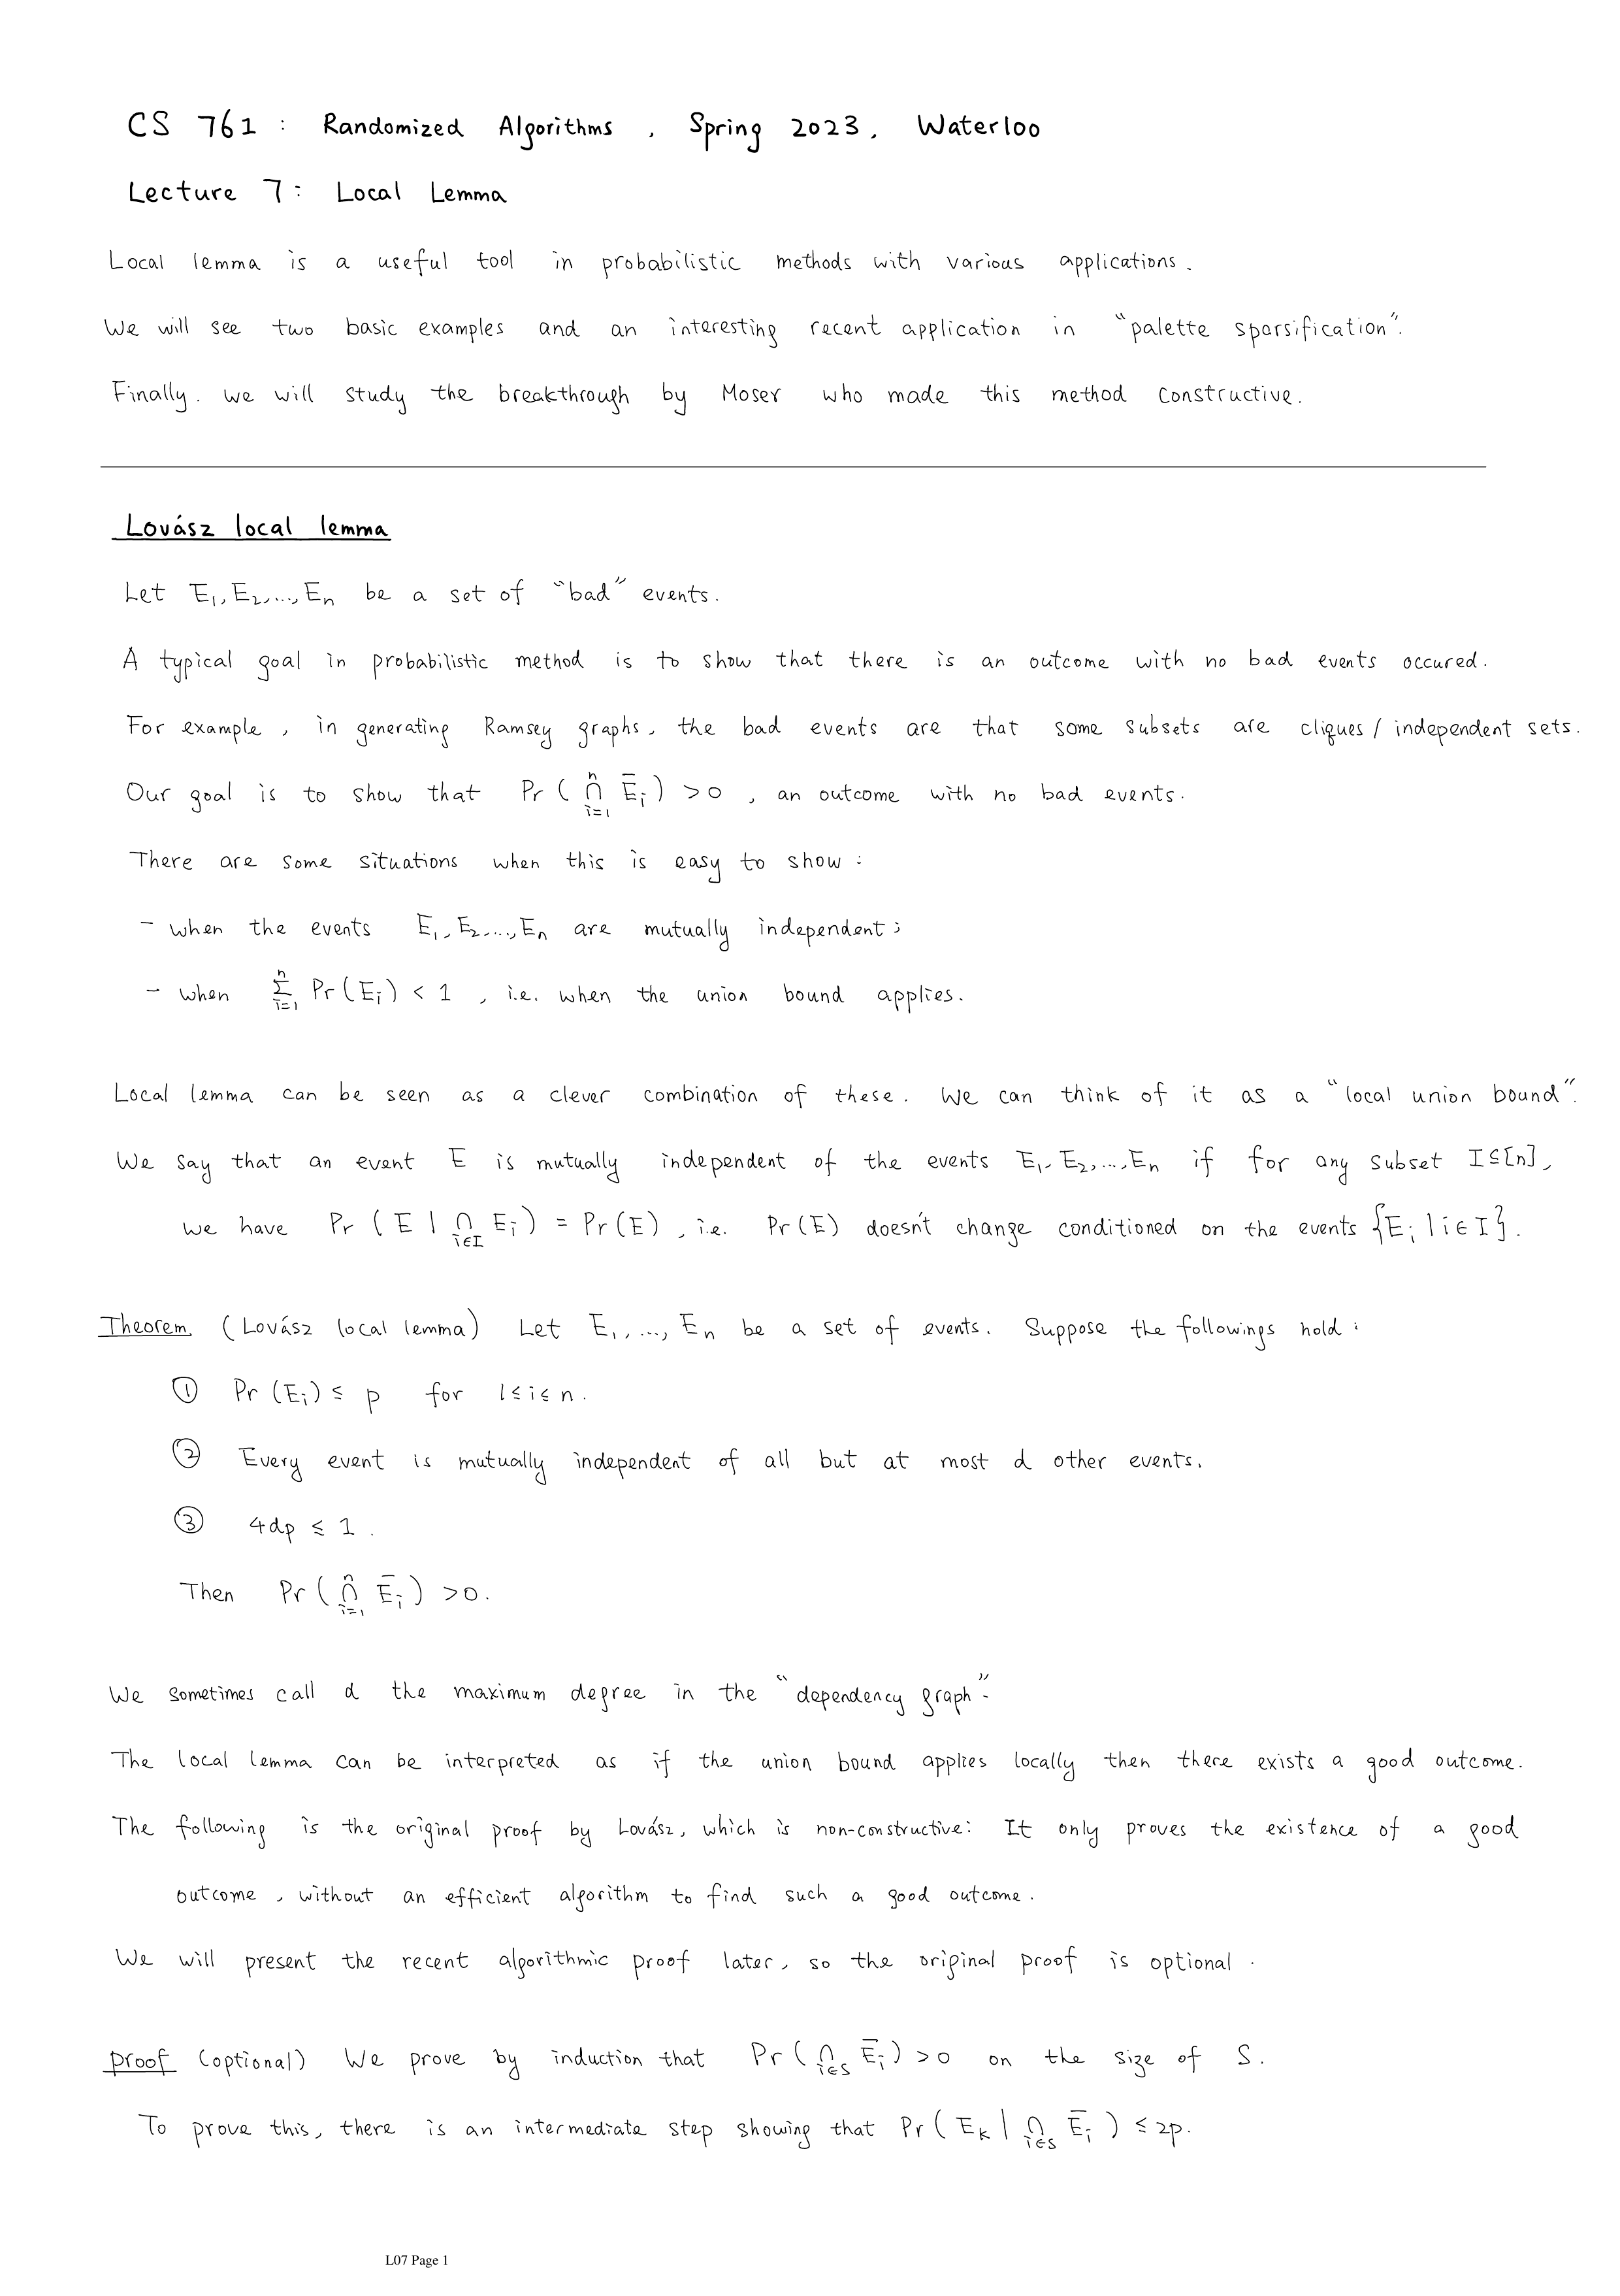 CS 761 : Randomized Algorithms , Spring 2023 , Waterloo
Lecture 7 : Local Lemma
Local lemma is a useful tool in probabilistic methods with various applications .
We will see two basic examples and an interesting recent application in “palette sparsification”.
Finally , we will study the breakthrough by Moser who made this method constructive .
Lovász local lemma
Let E₁, E₂, ..., Eₙ be a set of “bad” events .
A typical goal in probabilistic method is to show that there is an outcome with no bad events occured .
For example , in generating Ramsey graphs , the bad events are that some subsets are cliques / independent sets .
Our goal is to show that Pr ( ⋂ᵢ₌₁ⁿ Ēᵢ ) > 0 , an outcome with no bad events .
There are some situations when this is easy to show :
- when the events E₁, E₂, ..., Eₙ are mutually independent ;
- when ∑ᵢ₌₁ⁿ Pr(Eᵢ) < 1 , i.e. when the union bound applies .
Local lemma can be seen as a clever combination of these . We can think of it as a “local union bound”.
We say that an event E is mutually independent of the events E₁, E₂, ..., Eₙ if for any subset I ⊆ [n] ,
we have Pr ( E | ⋂_{i∈I} Eᵢ ) = Pr(E) , i.e. Pr(E) doesn't change conditioned on the events {Eᵢ | i ∈ I} .
Theorem ( Lovász local lemma ) Let E₁, ..., Eₙ be a set of events . Suppose the followings hold :
① Pr (Eᵢ) ≤ p for 1 ≤ i ≤ n .
② Every event is mutually independent of all but at most d other events .
③ 4dp ≤ 1 .
Then Pr ( ⋂ᵢ₌₁ⁿ Ēᵢ ) > 0 .
We sometimes call d the maximum degree in the “dependency graph”.
The local lemma can be interpreted as if the union bound applies locally then there exists a good outcome .
The following is the original proof by Lovász , which is non-constructive : It only proves the existence of a good
outcome , without an efficient algorithm to find such a good outcome .
We will present the recent algorithmic proof later , so the original proof is optional .
Proof (optional) We prove by induction that Pr ( ⋂_{i∈S} Ēᵢ ) > 0 on the size of S .
To prove this , there is an intermediate step showing that Pr ( Eₖ | ⋂_{i∈S} Ēᵢ ) ≤ 2p .
L07 Page 1